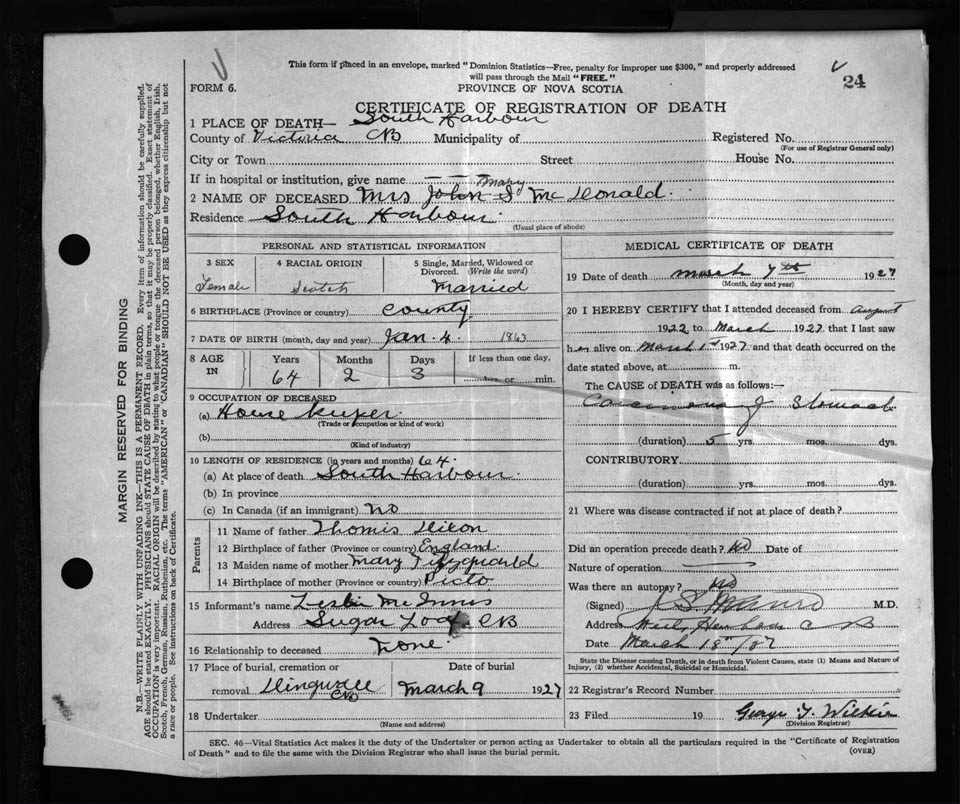 This form if placed in an envelope, marked "Dominion Statistics—Free, penalty for improper use $300," and properly addressed
will pass through the Mail "FREE."
24
FORM 6.
PROVINCE OF NOVA SCOTIA
CERTIFICATE OF REGISTRATION OF DEATH
1 PLACE OF DEATH— South Harbour
County of Victoria CB Municipality of Registered No.
(For use of Registrar General only)
City or Town Street House No.
If in hospital or institution, give name — —
Mary
2 NAME OF DECEASED Mrs John S McDonald
Residence South Harbour
(Usual place of abode)
PERSONAL AND STATISTICAL INFORMATION
3 SEX 4 RACIAL ORIGIN 5 Single, Married, Widowed or Divorced. (Write the word)
Female Scotch Married
6 BIRTHPLACE (Province or country) County
7 DATE OF BIRTH (month, day and year) Jan. 4. 1863
8 AGE IN Years Months Days If less than one day,
64 2 3 hrs. or min.
9 OCCUPATION OF DECEASED
(a) House Keeper
(Trade or occupation or kind of work)
(b)
(Kind of industry)
10 LENGTH OF RESIDENCE (in years and months) 64
(a) At place of death South Harbour
(b) In province
(c) In Canada (if an immigrant) no
Parents
11 Name of father Thomis Dixon
12 Birthplace of father (Province or country) England
13 Maiden name of mother Mary Fitzgearld
14 Birthplace of mother (Province or country) Picto
15 Informant's name Leslie McInnis
Address Sugar Loaf CB
16 Relationship to deceased None
17 Place of burial, cremation or Date of burial
removal Dingwall CB March 9 1927
18 Undertaker
(Name and address)
MEDICAL CERTIFICATE OF DEATH
19 Date of death March 7th 1927
(Month, day and year)
20 I HEREBY CERTIFY that I attended deceased from August
1922 to March 1927 that I last saw
her alive on March 1st 1927 and that death occurred on the
date stated above, at m.
The CAUSE of DEATH was as follows:—
Carcinoma of Stomach
(duration) 5 yrs. mos. dys.
CONTRIBUTORY
(duration) yrs. mos. dys.
21 Where was disease contracted if not at place of death?
Did an operation precede death? No Date of
Nature of operation
Was there an autopsy? No
(Signed) M.D.
Address C B
Date March 18th/27
State the Disease causing Death, or in death from Violent Causes, state (1) Means and Nature of
Injury, (2) whether Accidental, Suicidal or Homicidal.
22 Registrar's Record Number
23 Filed 19 George Wilkie
(Division Registrar)
SEC. 46—Vital Statistics Act makes it the duty of the Undertaker or person acting as Undertaker to obtain all the particulars required in the "Certificate of Registration
of Death" and to file the same with the Division Registrar who shall issue the burial permit. (OVER)
MARGIN RESERVED FOR BINDING
N.B.—WRITE PLAINLY WITH UNFADING INK—THIS IS A PERMANENT RECORD. Every item of information should be carefully supplied.
AGE should be stated EXACTLY. PHYSICIANS should STATE CAUSE OF DEATH in plain terms, so that it may be properly classified. Exact statement of
OCCUPATION is very important. RACIAL ORIGIN will be described by stating to what people or tongue the deceased person belonged, whether English, Irish,
Scotch, French, German, Russian, Ruthenian, etc. The terms "AMERICAN" or "CANADIAN" SHOULD NOT BE USED as they express citizenship but not
a race or people. See instructions on back of Certificate.